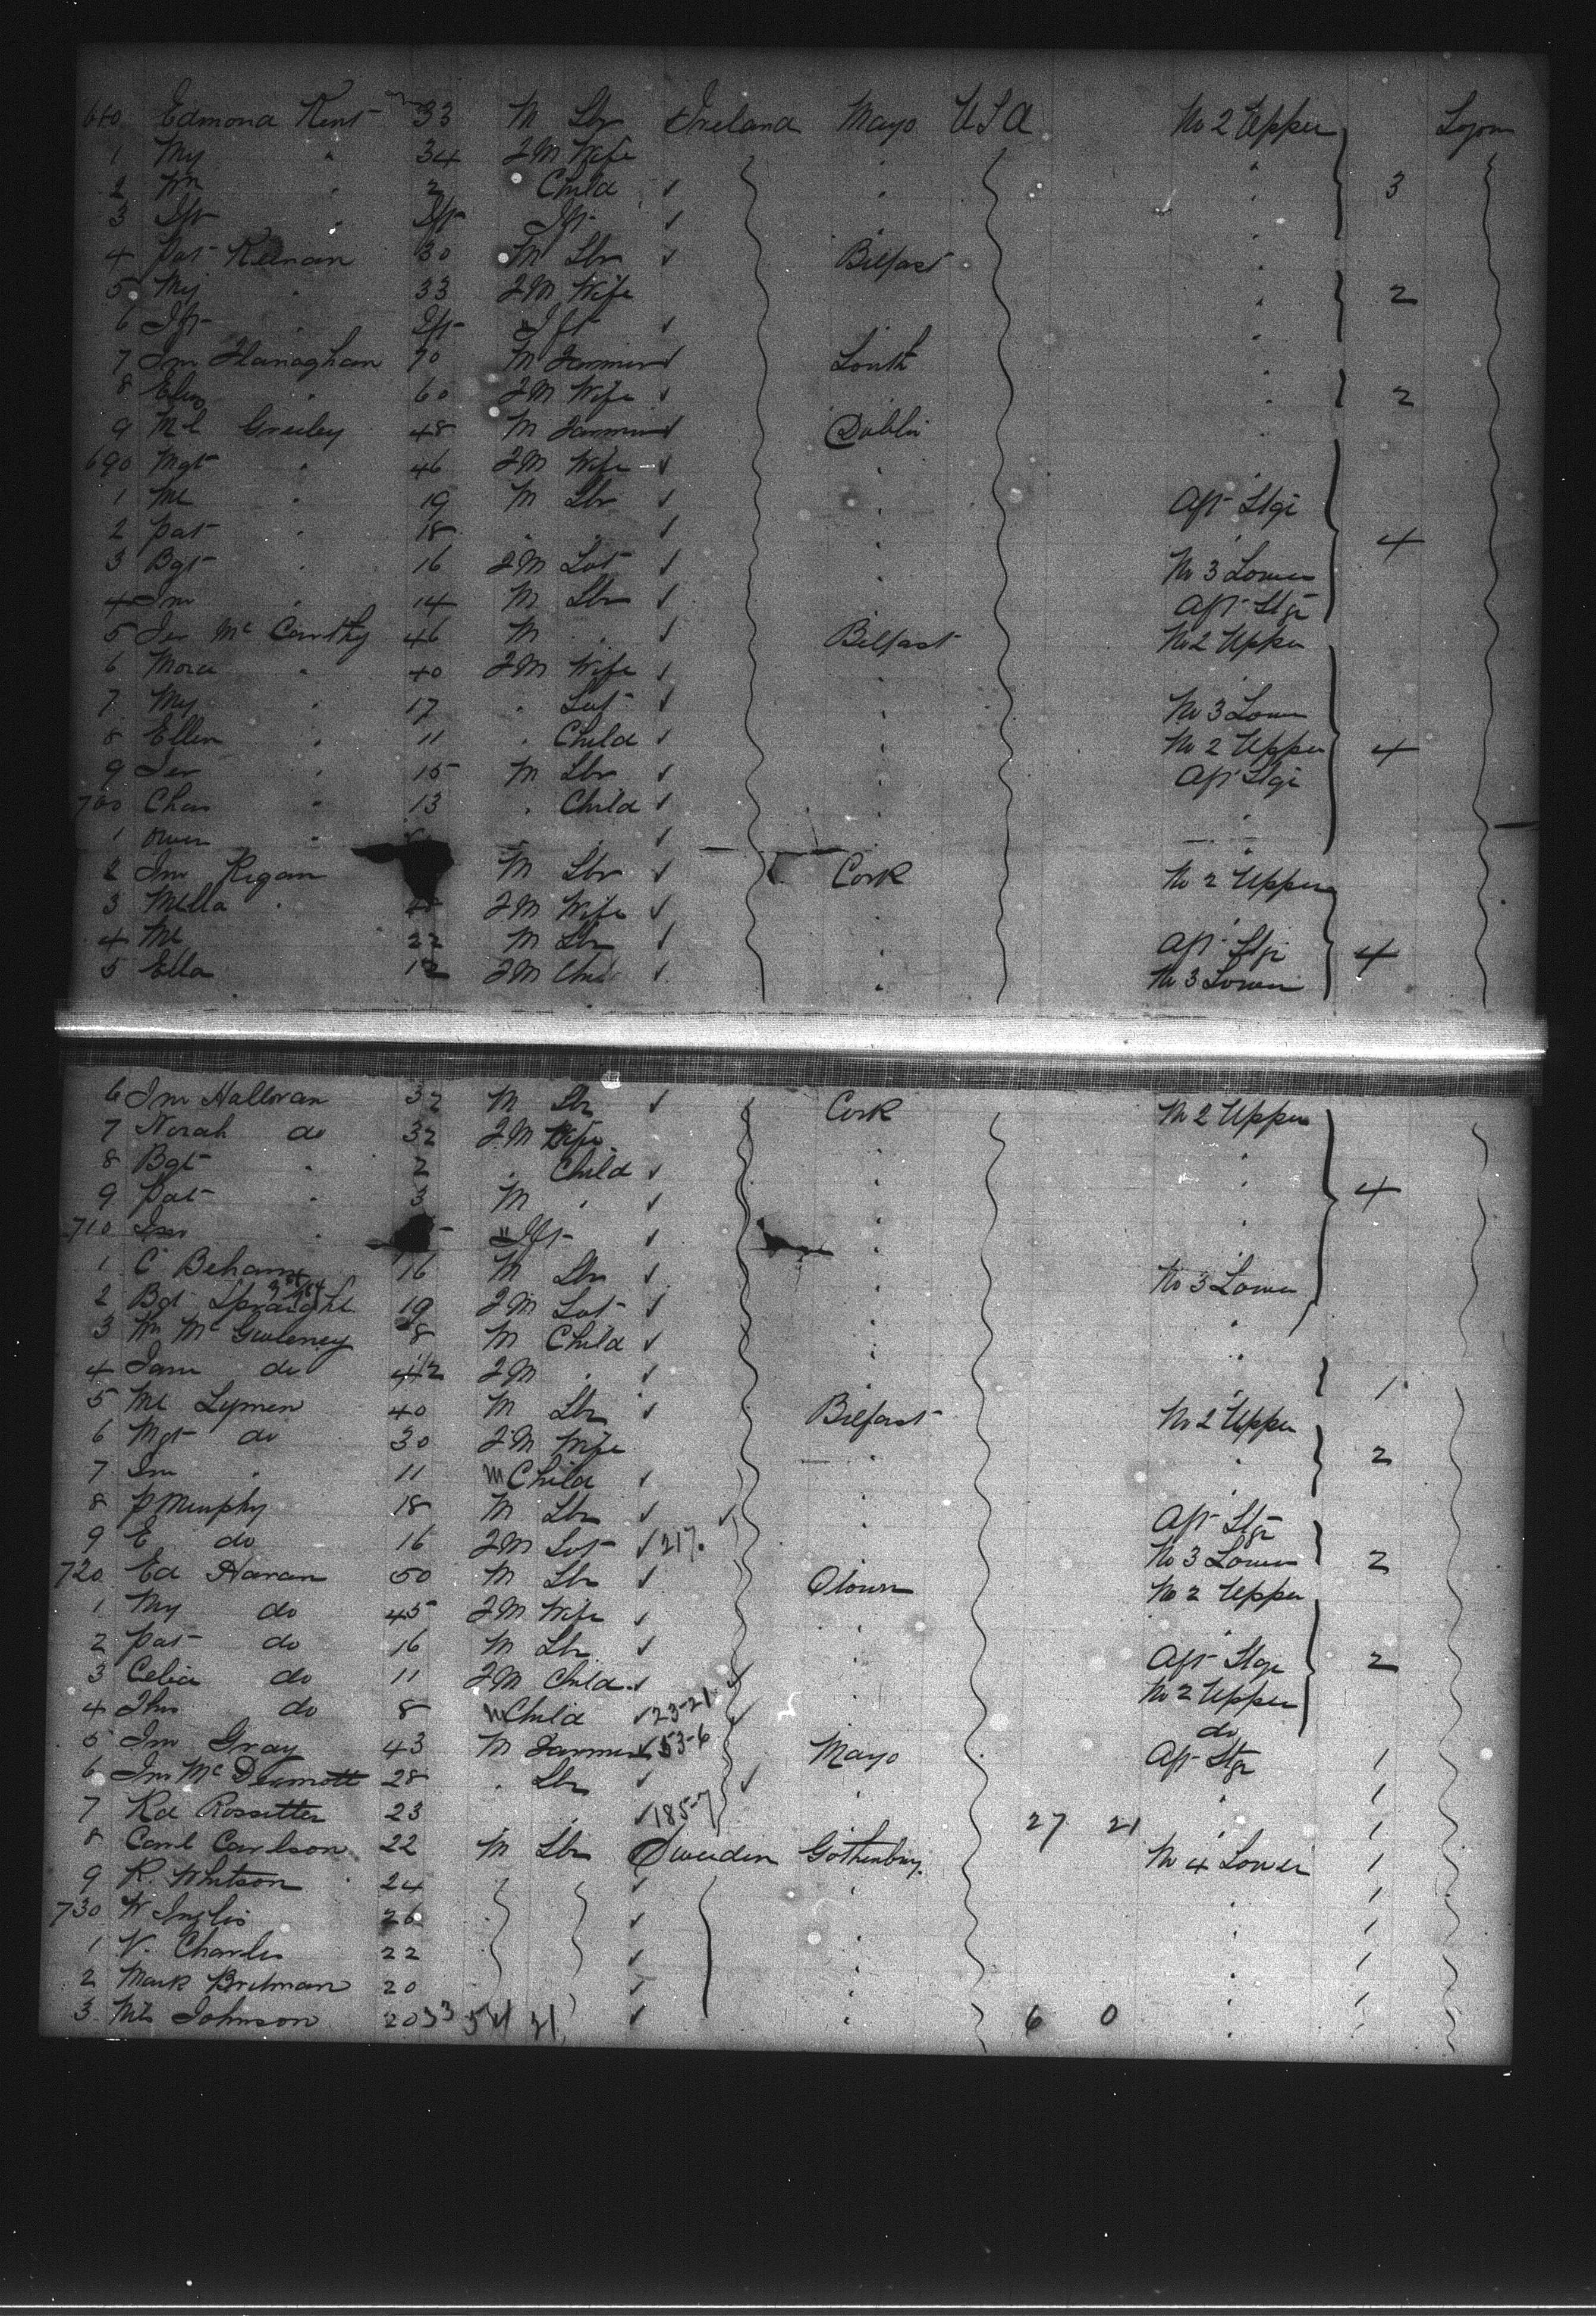 680 Edmond Kent 33 M Lbr Ireland Mayo U S A No 2 Upper Sojon
1 My " 34 FM Wife "
2 Wm " 2 Child " " 3
3 Ift " Ift Ift "
4 Pat Keenan 30 M Lbr Belfast "
5 My " 33 FM Wife " 2
6 Ift " Ift Ift "
7 Jno Flanaghan 70 M Farmer Louth "
8 Eliz " 60 FM Wife " 2
9 Ml Greeley 48 M Farmer Dublin "
690 Mgt " 46 FM Wife "
1 Ml " 19 M Lbr " Aft Stge
2 Pat " 18 " " " " 4
3 Bgt " 16 FM Svt " No 3 Lower
4 Jno " 14 M Lbr " Aft Stge
5 Jer Mc Carthy 46 M " Belfast No 2 Upper
6 Nora " 40 FM Wife " "
7 My " 17 " Svt " No 3 Lower
8 Ellen " 11 " Child " No 2 Upper 4
9 Jer " 15 M Lbr " Aft Stge
700 Chas " 13 " Child " "
1 Owen " " " " "
2 Jno Regan M Lbr Cork No 2 Upper
3 " FM Wife " "
4 Ml 22 M Lbr " Aft Stge 4
5 Ella 12 FM Child " No 3 Lower
6 Jno Halloran 32 M Lbr Cork No 2 Upper
7 Norah do 32 FM Wife " "
8 Bgt " 2 " Child " "
9 Pat " 3 M " " " 4
710 Jno " Ift " "
1 C Beham 16 M Lbr " No 3 Lower
2 Bgt 19 FM Svt " "
3 Wm Mc 8 M Child " "
4 Jane do 12 FM " " "
5 Ml Lymen 40 M Lbr Belfast No 2 Upper 1
6 Mgt do 30 FM Wife " "
7 Jno " 11 M Child " " 2
8 P Murphy 18 M Lbr " Aft Stge
9 E do 16 FM Svt 217. " No 3 Lower 2
720 Ed Haran 50 M Lbr Qtown No 2 Upper
1 My do 45 FM Wife " "
2 Pat do 16 M Lbr " Aft Stge 2
3 Celia do 11 FM Child " No 2 Upper
4 Thos do 8 M Child 23-21 " do
5 Jno Gray 43 M Farmer 53-6 Mayo Aft Stge 1
6 Jno Mc Dermott 28 " Lbr " " 1
7 Rd Rossitter 23 " 185-7 27 21 " 1
8 Carl Carlson 22 M Lbr Sweden Gothenburg. No 4 Lower 1
9 R. Whitson 24 " " 1
730 W Inglis 26 " " 1
1 V. Charles 22 " " 1
2 Mark Britman 20 " " 1
3 Johnson 20 33 21 " 6 0 " 1